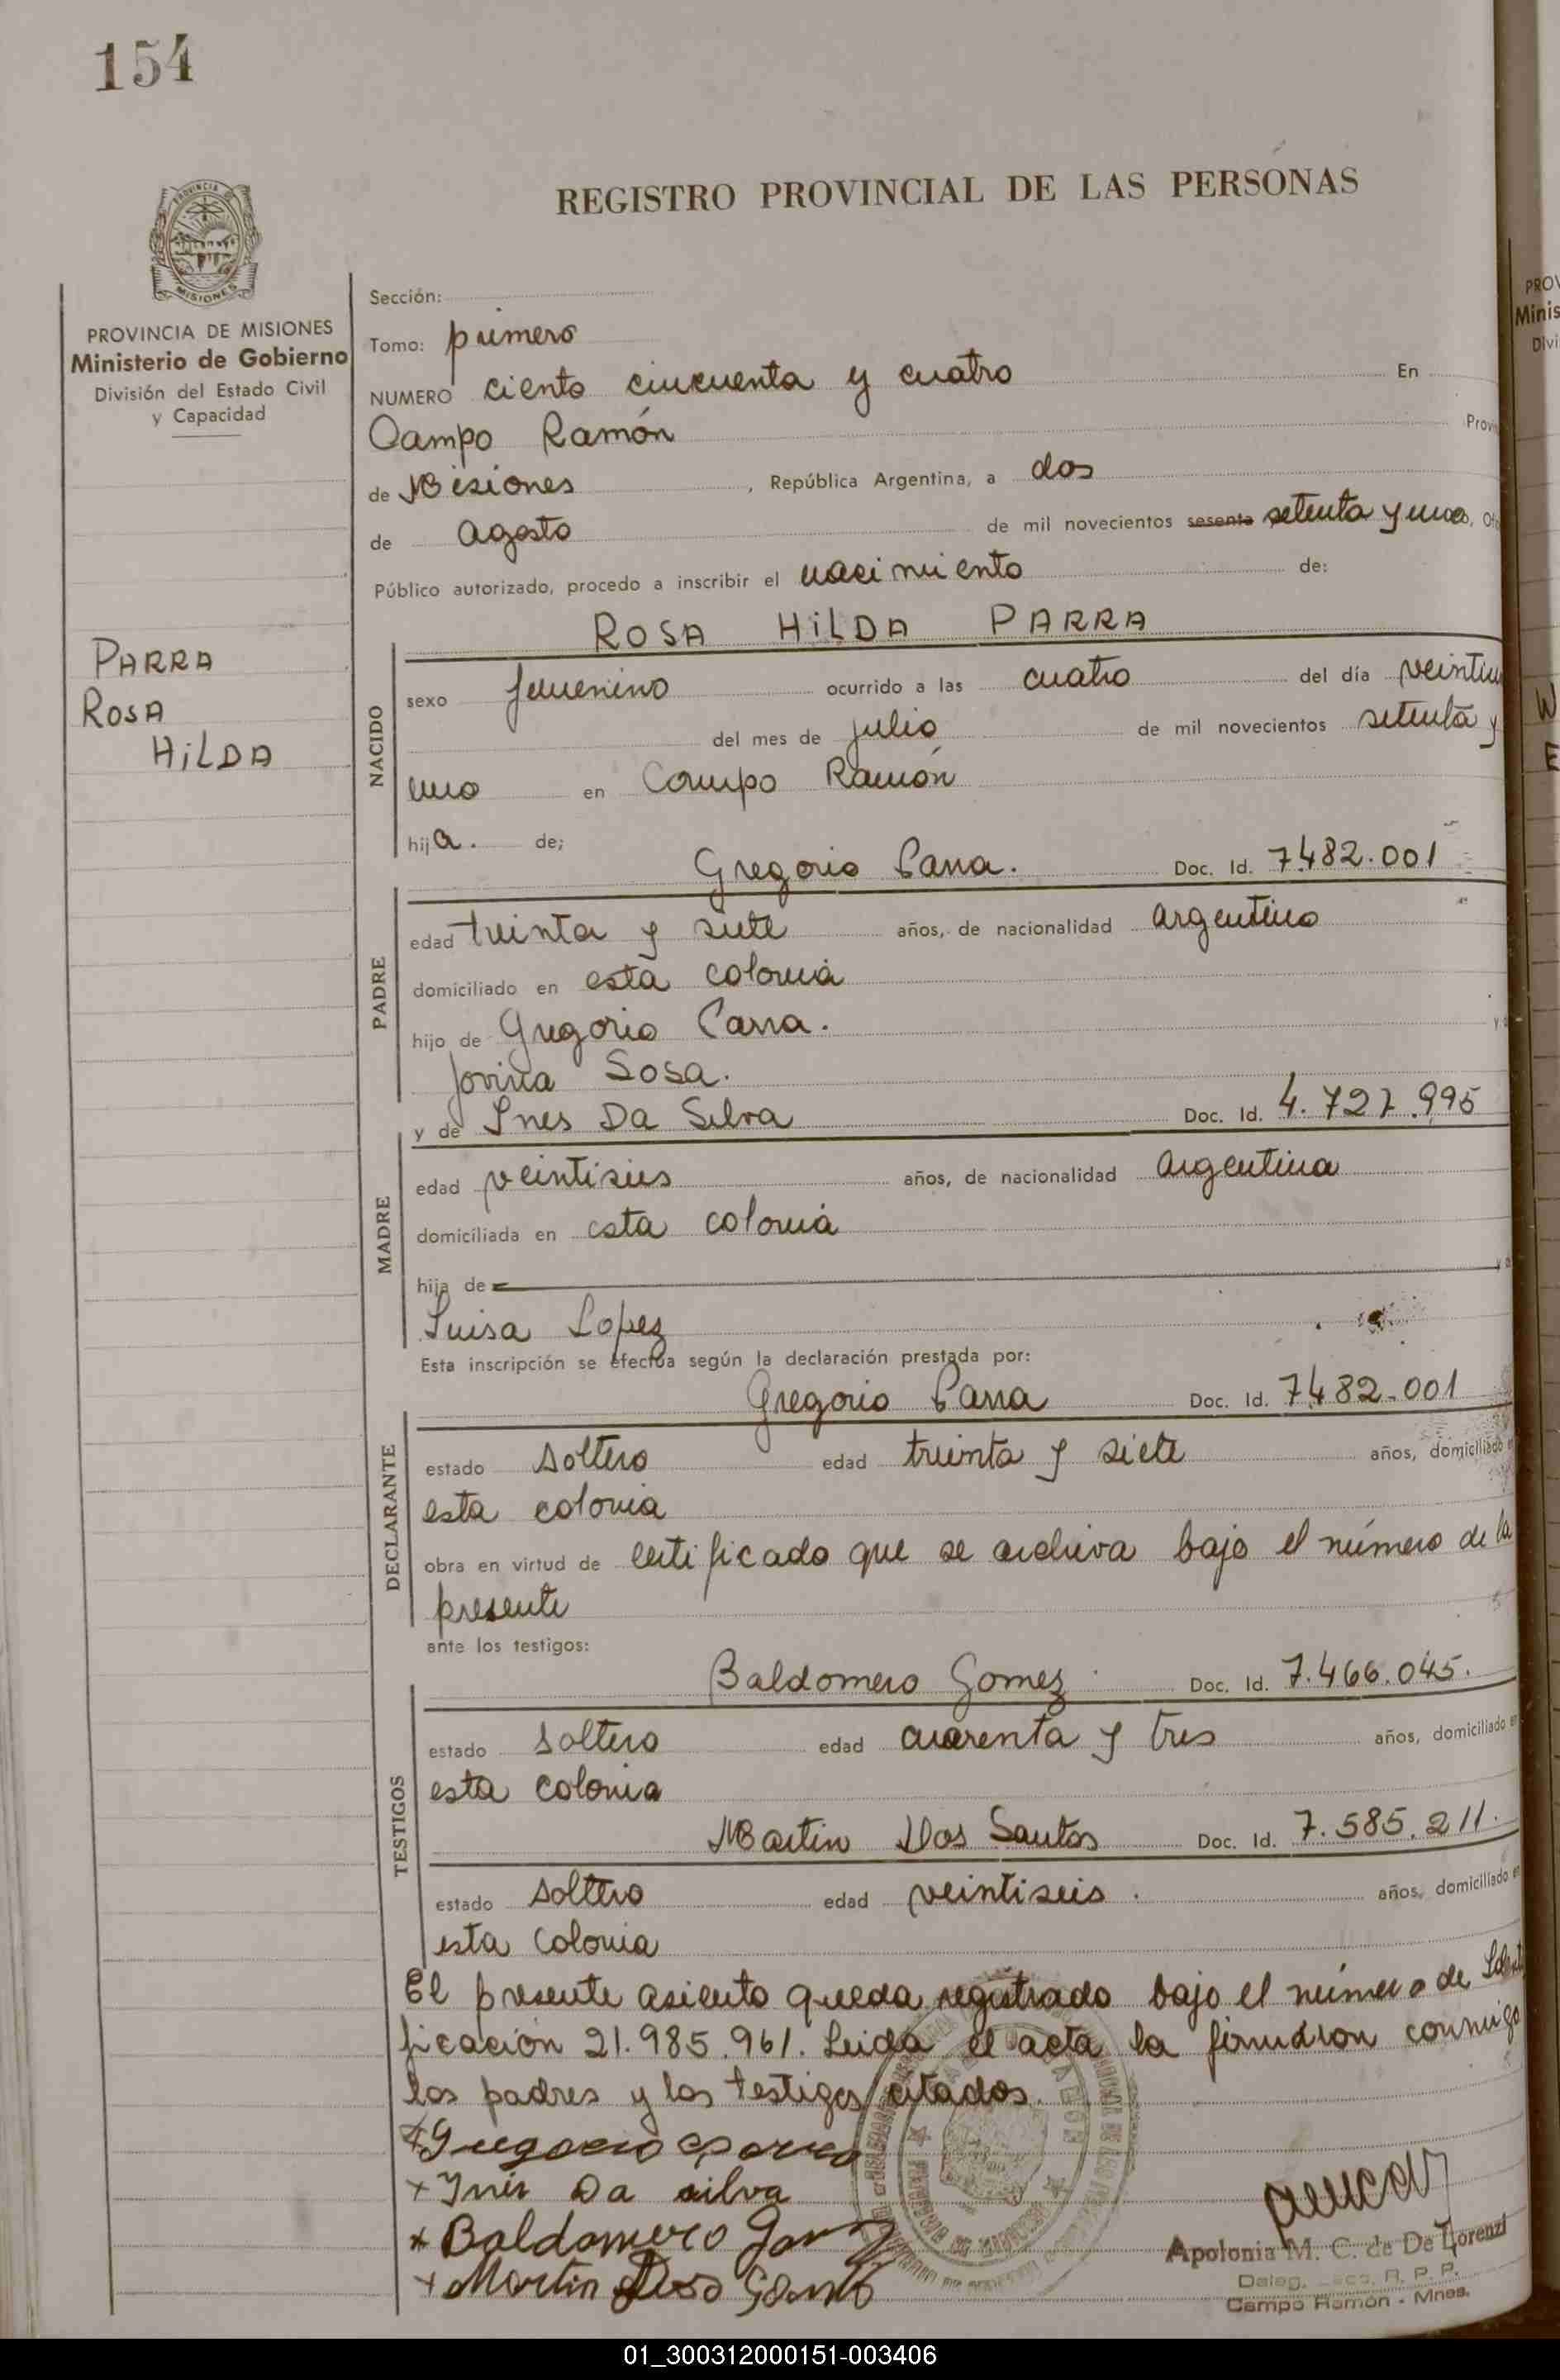 154
REGISTRO PROVINCIAL DE LAS PERSONAS
PROVINCIA DE MISIONES
Ministerio de Gobierno
División del Estado Civil
y Capacidad
PARRA
ROSA
HILDA
Sección:
Tomo: primero
NUMERO ciento cincuenta y cuatro En
Campo Ramón Provin
de Misiones, República Argentina, a dos
de Agosto de mil novecientos sesenta setenta y uno, Ofi
Público autorizado, procedo a inscribir el nacimiento de:
ROSA HILDA PARRA
NACIDO
sexo femenino ocurrido a las cuatro del día veintiu
del mes de julio de mil novecientos setenta y
uno en Campo Ramón
hija. de;
Gregorio Parra. Doc. Id. 7.482.001
PADRE
edad treinta y siete años, de nacionalidad argentino
domiciliado en esta colonia
hijo de Gregorio Parra.
Jovina Sosa.
y de Ines Da Silva Doc. Id. 4.727.995
MADRE
edad veintiseis años, de nacionalidad argentina
domiciliada en esta colonia
hija de
Luisa Lopez
Esta inscripción se efectúa según la declaración prestada por:
Gregorio Parra Doc. Id. 7.482.001
DECLARANTE
estado soltero edad treinta y siete años, domiciliado en
esta colonia
obra en virtud de certificado que se archiva bajo el número de la
presente
ante los testigos:
Baldomero Gomez Doc. Id. 7.466.045.
TESTIGOS
estado soltero edad cuarenta y tres años, domiciliado en
esta colonia
Martin Dos Santos Doc. Id. 7.585.211.
estado soltero edad veintiseis. años, domiciliado en
esta colonia
El presente asiento queda registrado bajo el número de Identi
ficación 21.985.961. Leida el acta la firmaron conmigo
los padres y los testigos citados.
+ Gregorio Parra
+ Inés Da silva
+ Baldomero Gomez
+ Martin Dos Santo
Apolonia M. C. de De Lorenzi
Deleg. R. P. P.
Campo Ramón - Mnes.
PROV
Minis
Divi
W
E
01_300312000151-003406